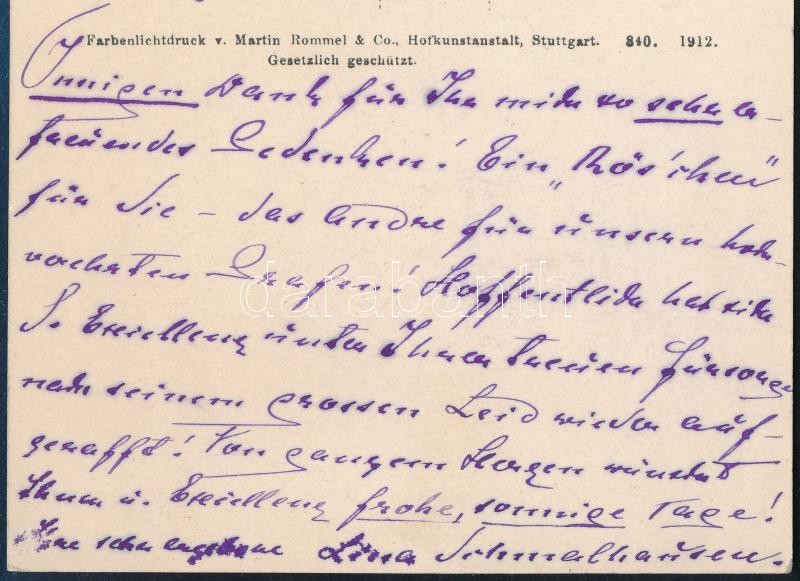 Farbenlichtdruck v. Martin Rommel & Co., Hofkunstanstalt, Stuttgart. 840. 1912.
Gesetzlich geschützt.
Innigen Dank für Ihr mich so sehr er-
freuendes Gedenken! Ein „Rös'chen"
für Sie – das andre für unsern hoch-
Grafen! Hoffentlich hat sich
S. Excellenz unter Ihrer treuen Fürsorge
nach seinem grossen Leid wieder auf-
gerafft! Von ganzem Herzen wünscht
Ihnen u. Excellenz frohe, sonnige Tage!
Ihre sehr ergebene Lina Schmalhausen.
darabanth